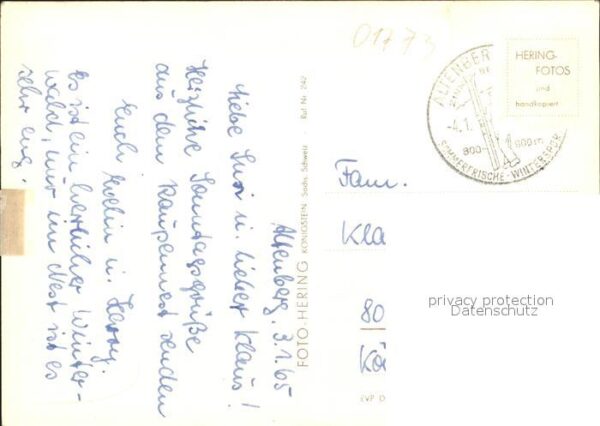 Altenberg, 3.1.65
Liebe Susi u. lieber Klaus!
Herzliche Sonntagsgrüße
aus dem Raupennest senden
Euch Evelin u. Harry.
Es ist ein herrlicher Winter-
wald, nur im Nest ist es
sehr eng.
FOTO-HERING KÖNIGSTEIN Sächs. Schweiz - Ruf Nr. 242
01773
ALTENBER
-4.1.
800-900m
SOMMERFRISCHE - WINTERSPORT
HERING-
FOTOS
und
handkopiert
Fam.
Kla
80
Kö
EVP D
privacy protection
Datenschutz